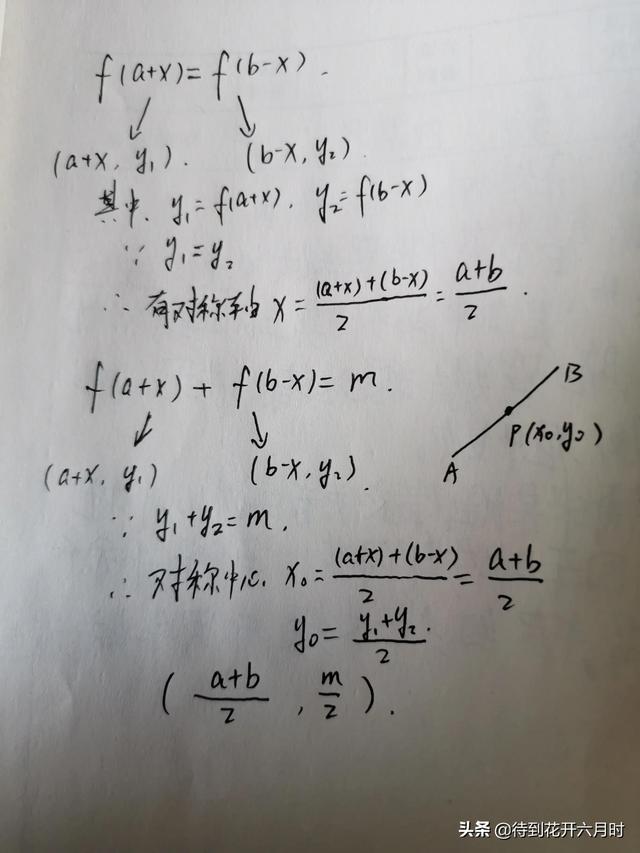 f(a+x)=f(b-x).
(a+x, y₁). (b-x, y₂).
其中. y₁=f(a+x). y₂=f(b-x)
∵ y₁=y₂
∴ 有对称轴 x = ((a+x)+(b-x))/2 = (a+b)/2 .
f(a+x) + f(b-x) = m.
(a+x, y₁) (b-x, y₂).
B
P(x₀,y₀)
A
∵ y₁+y₂=m.
∴ 对称中心. x₀ = ((a+x)+(b-x))/2 = (a+b)/2
y₀ = (y₁+y₂)/2.
( (a+b)/2 , m/2 ).
头条 @待到花开六月时